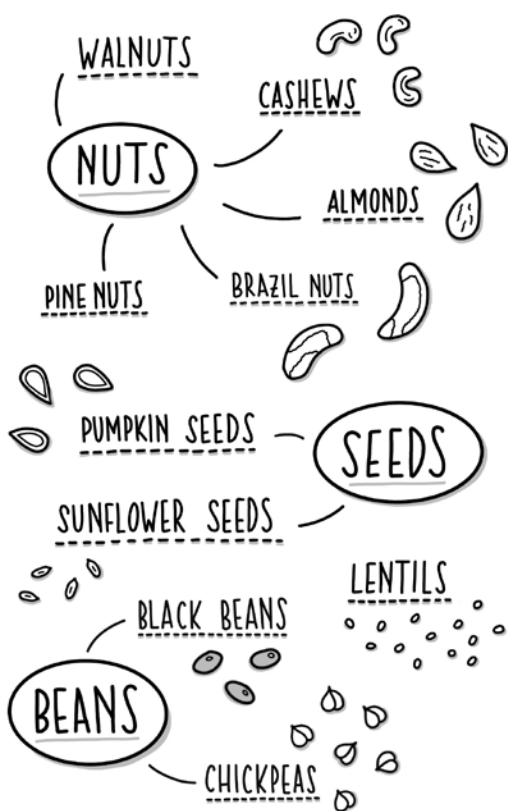 WALNUTS
CASHEWS
NUTS
ALMONDS
PINE NUTS
BRAZIL NUTS
PUMPKIN SEEDS
SEEDS
SUNFLOWER SEEDS
LENTILS
BLACK BEANS
BEANS
CHICKPEAS